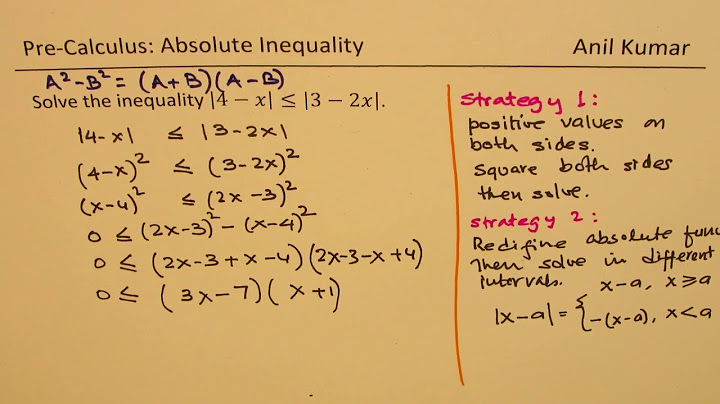 Pre-Calculus: Absolute Inequality
Anil Kumar
A² - B² = (A+B)(A-B)
Solve the inequality |4 − x| ≤ |3 − 2x|.
|4-x| ≤ |3-2x|
(4-x)² ≤ (3-2x)²
(x-4)² ≤ (2x-3)²
0 ≤ (2x-3)² - (x-4)²
0 ≤ (2x-3+x-4)(2x-3-x+4)
0 ≤ (3x-7)(x+1)
Strategy 1:
positive values on
both sides.
Square both sides
then solve.
Strategy 2:
Redifine absolute func
Then solve in different
intervals.
|x-a| = { x-a, x≥a
-(x-a), x<a